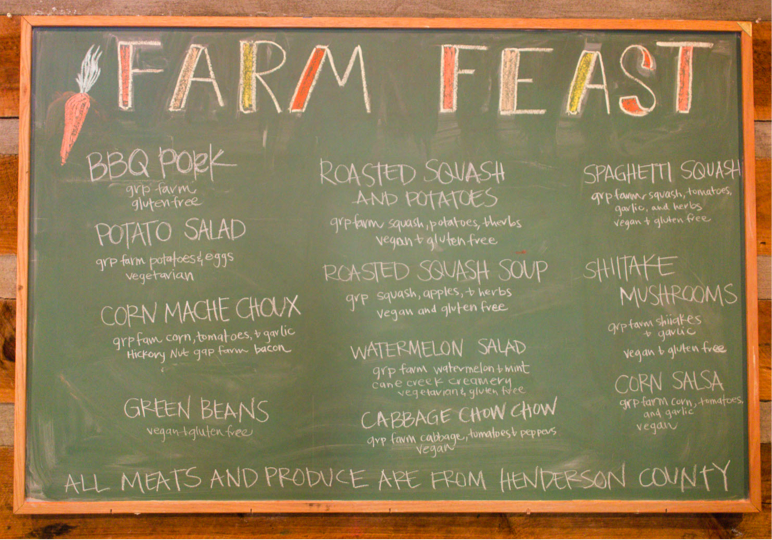 FARM FEAST
BBQ PORK
grp farm
gluten free
POTATO SALAD
grp farm potatoes & eggs
vegetarian
CORN MACHE CHOUX
grp fam corn, tomatoes, + garlic
Hickory Nut gap farm bacon
GREEN BEANS
vegan + gluten free
ROASTED SQUASH
AND POTATOES
grp farm squash, potatoes, + herbs
vegan + gluten free
ROASTED SQUASH SOUP
grp squash, apples, + herbs
vegan and gluten free
WATERMELON SALAD
grp farm watermelon + mint
cane creek creamery
vegetarian +, gluten free
CABBAGE CHOW CHOW
grp farm cabbage, tomatoes + peppers
vegan
SPAGHETTI SQUASH
grp farm squash, tomatoes,
garlic, and herbs
vegan + gluten free
SHIITAKE
MUSHROOMS
grp farm shiitakes
+ garlic
vegan + gluten free
CORN SALSA
grp farm corn, tomatoes,
and garlic
vegan
ALL MEATS AND PRODUCE ARE FROM HENDERSON COUNTY